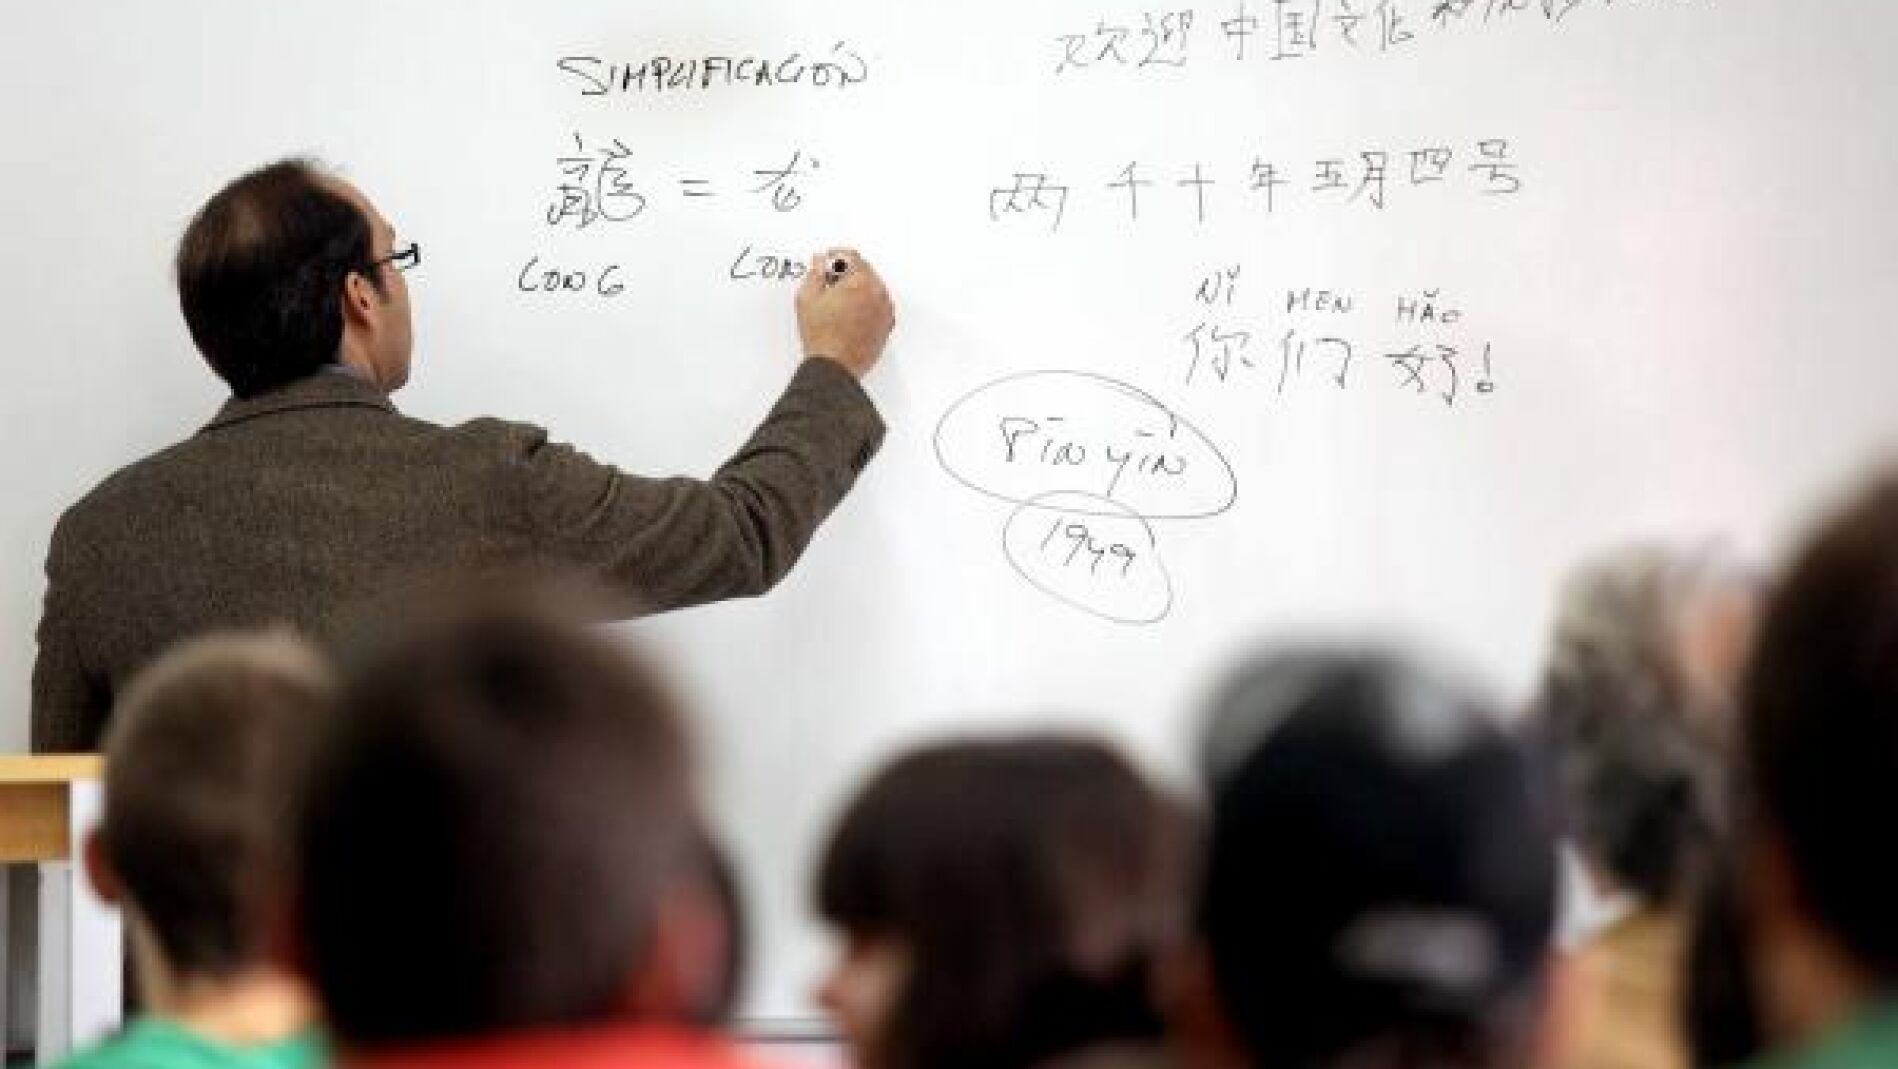 SIMPLIFICACIÓN
龍 = 龙
LONG LON
欢迎 中国文化
两千十年五月四号
NǏ MEN HǍO
你们好!
Pīn yīn
1949